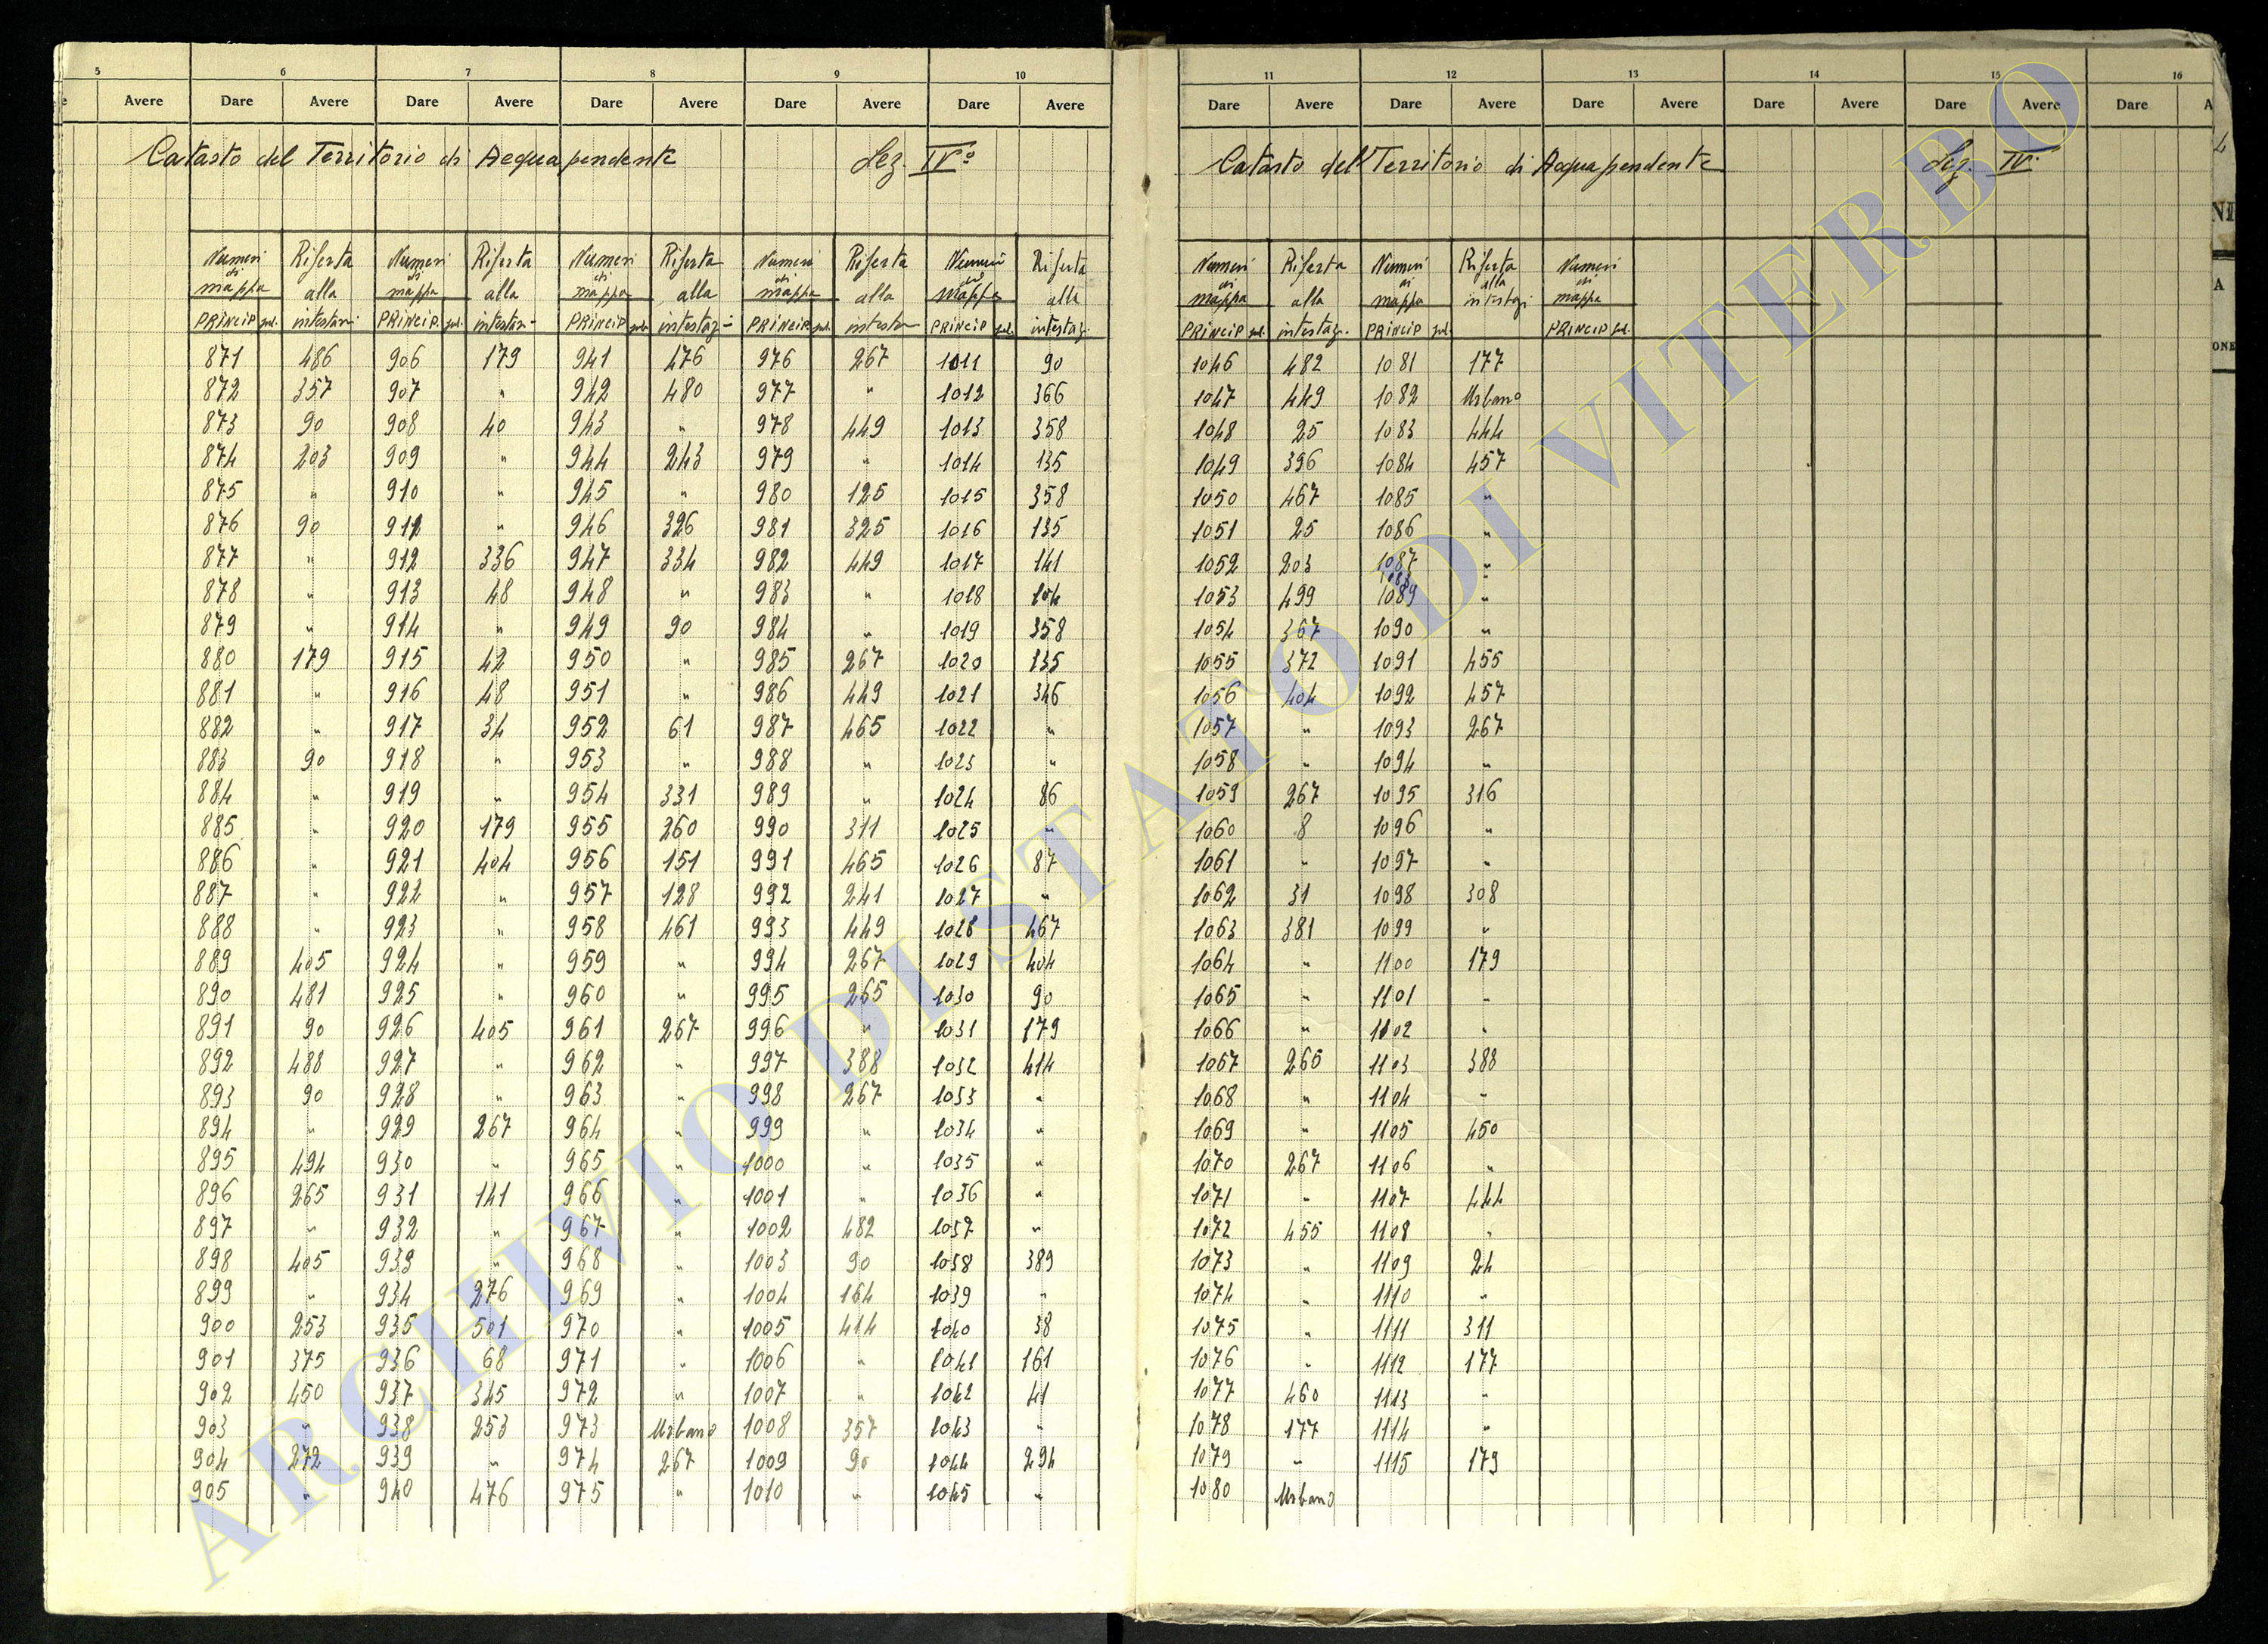 5 6 7 8 9 10
Avere Dare Avere Dare Avere Dare Avere Dare Avere Dare Avere
Catasto del Territorio di Acquapendente Sez. IVª
Numeri Riferta Numeri Riferta Numeri Riferta Numeri Riferta Numeri Riferta
di di di di di
mappa alla mappa alla mappa alla mappa alla mappa alla
PRINCIP sul. PRINCIP. sul. intestaz- PRINCIP sul. intestaz- PRINCIP sul. PRINCIP sul. intestaz.
871 486 906 179 941 476 976 267 1011 90
872 357 907 " 942 480 977 " 1012 366
873 90 908 40 943 " 978 449 1013 358
874 203 909 " 944 243 979 " 1014 135
875 " 910 " 945 " 980 125 1015 358
876 90 911 " 946 326 981 325 1016 135
877 " 912 336 947 334 982 449 1017 141
878 " 913 48 948 " 983 " 1018 104
879 " 914 " 949 90 984 " 1019 358
880 179 915 42 950 " 985 267 1020 135
881 " 916 48 951 " 986 449 1021 346
882 " 917 34 952 61 987 465 1022 "
883 90 918 " 953 " 988 " 1023 "
884 " 919 " 954 331 989 " 1024 86
885 " 920 179 955 260 990 311 1025 "
886 " 921 404 956 151 991 465 1026 87
887 " 922 " 957 128 992 241 1027 "
888 " 923 " 958 461 993 449 1028 467
889 405 924 " 959 " 994 267 1029 404
890 481 925 " 960 " 995 265 1030 90
891 90 926 405 961 267 996 " 1031 179
892 488 927 " 962 " 997 388 1032 414
893 90 928 " 963 " 998 267 1033 "
894 " 929 267 964 " 999 " 1034 "
895 494 930 " 965 " 1000 " 1035 "
896 265 931 141 966 " 1001 " 1036 "
897 " 932 " 967 " 1002 482 1037 "
898 405 933 " 968 " 1003 90 1038 389
899 " 934 276 969 " 1004 164 1039 "
900 253 935 501 970 " 1005 414 1040 38
901 375 936 68 971 " 1006 " 1041 161
902 450 937 345 972 " 1007 " 1042 41
903 " 938 253 973 Urbano 1008 357 1043 "
904 272 939 " 974 267 1009 90 1044 294
905 " 940 476 975 " 1010 " 1045 "
11 12 13 14 15 16
Dare Avere Dare Avere Dare Avere Dare Avere Dare Avere Dare A
Catasto dell Territorio di Acquapendente Sez. IVª
Numeri Riferta Numeri Riferta Numeri
di di alla di
mappa alla mappa intestaz. mappa
PRINCIP sul. intestaz. PRINCIP sul. PRINCIP sul.
1046 482 1081 177
1047 449 1082 Urbano
1048 25 1083 444
1049 396 1084 457
1050 467 1085 "
1051 25 1086 "
1052 203 1087 "
1088 "
1053 499 1089 "
1054 367 1090 "
1055 372 1091 455
1056 404 1092 457
1057 " 1093 267
1058 " 1094 "
1059 267 1095 316
1060 8 1096 "
1061 " 1097 "
1062 31 1098 308
1063 381 1099 "
1064 " 1100 179
1065 " 1101 "
1066 " 1102 "
1067 265 1103 388
1068 " 1104 "
1069 " 1105 450
1070 267 1106 "
1071 " 1107 444
1072 455 1108 "
1073 " 1109 24
1074 " 1110 "
1075 " 1111 311
1076 " 1112 177
1077 460 1113 "
1078 177 1114 "
1079 " 1115 179
1080 Urbano
ARCHIVIO DI STATO DI VITERBO